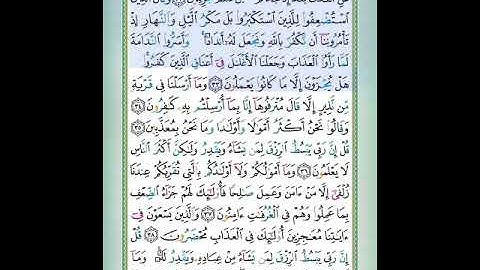 ٱسْتُضْعِفُوا۟ لِلَّذِينَ ٱسْتَكْبَرُوا۟ بَلْ مَكْرُ ٱلَّيْلِ وَٱلنَّهَارِ إِذْ
تَأْمُرُونَنَآ أَن نَّكْفُرَ بِٱللَّهِ وَنَجْعَلَ لَهُۥٓ أَندَادًا ۚ وَأَسَرُّوا۟ ٱلنَّدَامَةَ
لَمَّا رَأَوُا۟ ٱلْعَذَابَ وَجَعَلْنَا ٱلْأَغْلَـٰلَ فِىٓ أَعْنَاقِ ٱلَّذِينَ كَفَرُوا۟
هَلْ يُجْزَوْنَ إِلَّا مَا كَانُوا۟ يَعْمَلُونَ ٣٣ وَمَآ أَرْسَلْنَا فِى قَرْيَةٍ
مِّن نَّذِيرٍ إِلَّا قَالَ مُتْرَفُوهَآ إِنَّا بِمَآ أُرْسِلْتُم بِهِۦ كَـٰفِرُونَ ٣٤
وَقَالُوا۟ نَحْنُ أَكْثَرُ أَمْوَٰلًا وَأَوْلَـٰدًا وَمَا نَحْنُ بِمُعَذَّبِينَ ٣٥
قُلْ إِنَّ رَبِّى يَبْسُطُ ٱلرِّزْقَ لِمَن يَشَآءُ وَيَقْدِرُ وَلَـٰكِنَّ أَكْثَرَ ٱلنَّاسِ
لَا يَعْلَمُونَ ٣٦ وَمَآ أَمْوَٰلُكُمْ وَلَآ أَوْلَـٰدُكُم بِٱلَّتِى تُقَرِّبُكُمْ عِندَنَا
زُلْفَىٰٓ إِلَّا مَنْ ءَامَنَ وَعَمِلَ صَـٰلِحًا فَأُو۟لَـٰٓئِكَ لَهُمْ جَزَآءُ ٱلضِّعْفِ
بِمَا عَمِلُوا۟ وَهُمْ فِى ٱلْغُرُفَـٰتِ ءَامِنُونَ ٣٧ وَٱلَّذِينَ يَسْعَوْنَ فِىٓ
ءَايَـٰتِنَا مُعَـٰجِزِينَ أُو۟لَـٰٓئِكَ فِى ٱلْعَذَابِ مُحْضَرُونَ ٣٨ قُلْ
إِنَّ رَبِّى يَبْسُطُ ٱلرِّزْقَ لِمَن يَشَآءُ مِنْ عِبَادِهِۦ وَيَقْدِرُ لَهُۥ ۚ وَمَآ